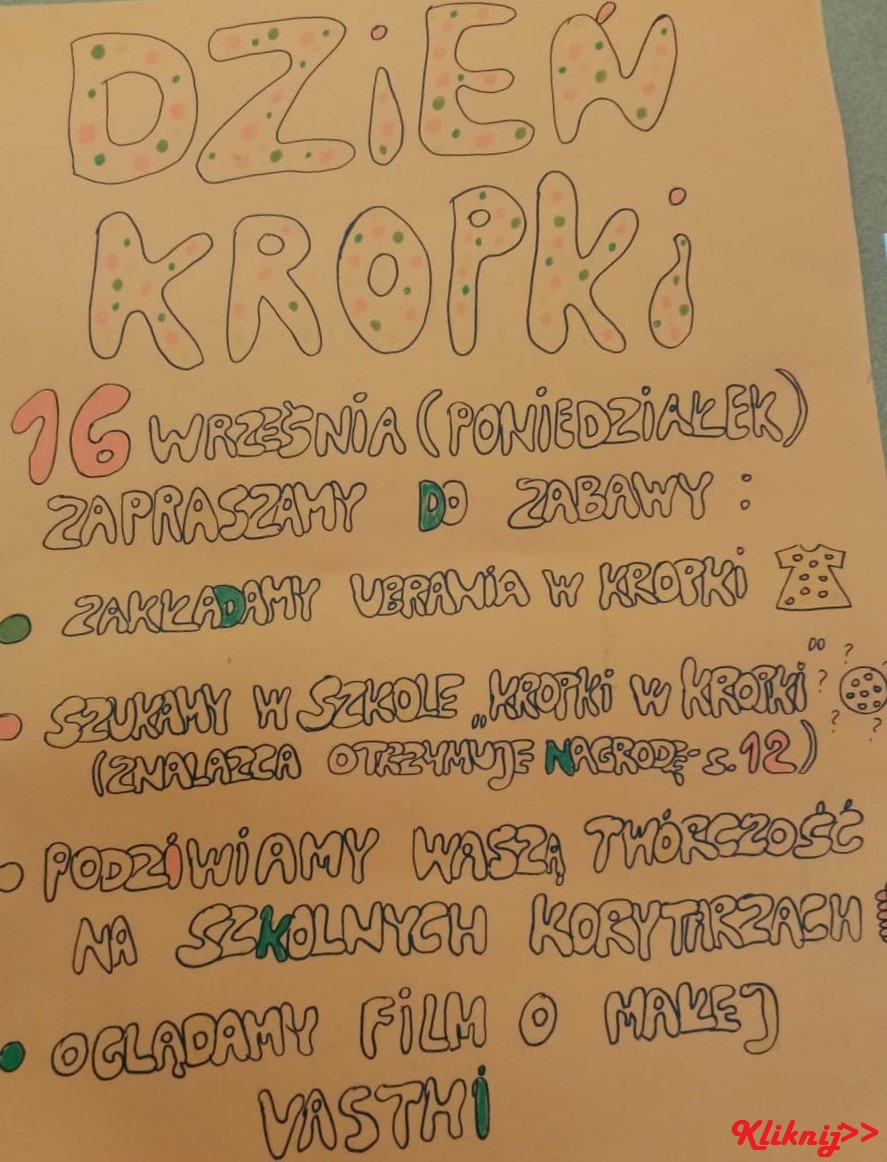 DZIEŃ
KROPKI
16 WRZEŚNIA (PONIEDZIAŁEK)
ZAPRASZAMY DO ZABAWY :
ZAKŁADAMY UBRANIA W KROPKI
SZUKAMY W SZKOLE „KROPKI W KROPKI"
(ZNALAZCA OTRZYMUJE NAGRODĘ - s. 12)
PODZIWIAMY WASZĄ TWÓRCZOŚĆ
NA SZKOLNYCH KORYTARZACH
OGLĄDAMY FILM O MAŁEJ
VASTHI
Kliknij>>